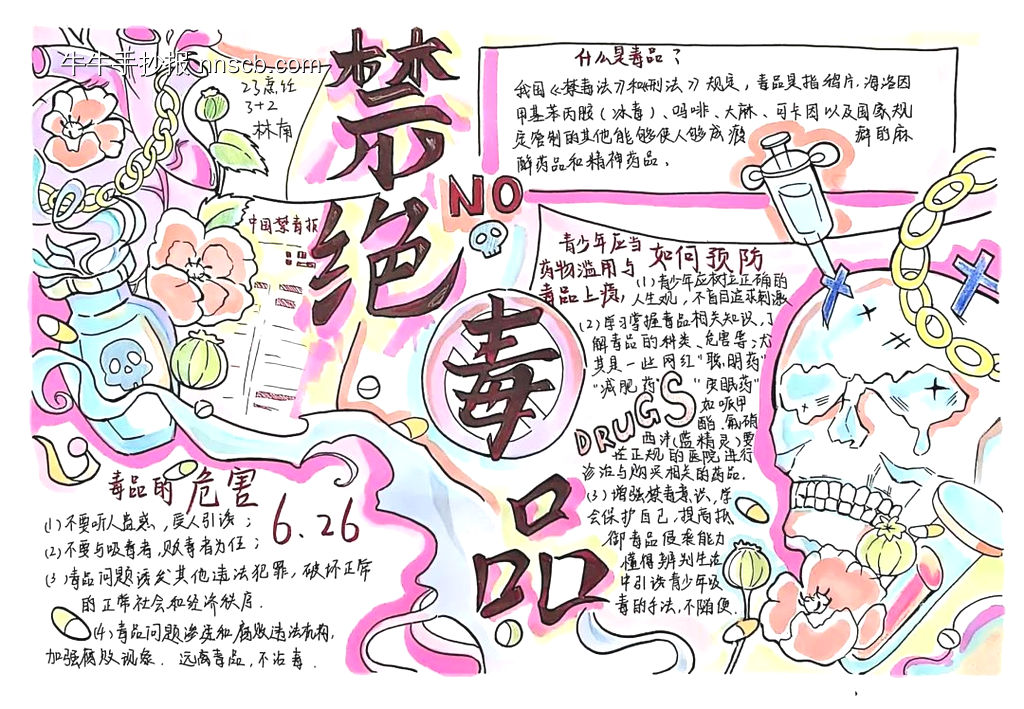 牛牛手抄报 nnscb.com
23烹饪
3+2
林南
禁绝毒品
NO
中国禁毒报
什么是毒品？
我国《禁毒法》和《刑法》规定，毒品是指鸦片.海洛因
甲基苯丙胺（冰毒）、吗啡、大麻、可卡因以及国家规
定管制的其他能够使人够成瘾 癖的麻
醉药品和精神药品。
青少年应当如何预防
药物滥用与
毒品上瘾，
(1)青少年应树立正确的
人生观，不盲目追求刺激
(2)学习掌握毒品相关知识，了
解毒品的种类、危害等；尤
其是一些网红"聪明药"
"减肥药" "安眠药"
如哌甲
酯、氟硝
西泮(蓝精灵)要
在正规的医院进行
诊治与购买相关的药品.
(3)增强禁毒意识,学
会保护自己,提高抵
御毒品侵袭能力
懂得辨别生活
中引诱青少年吸
毒的手法,不随便.
DRUGS
毒品的危害
6.26
(1)不要听人蛊惑,受人引诱；
(2)不要与吸毒者,贩毒者为伍；
(3)毒品问题诱发其他违法犯罪,破坏正常
的正常社会和经济秩序.
(4)毒品问题渗透和腐败违法机构,
加强腐败现象. 远离毒品,不沾毒.